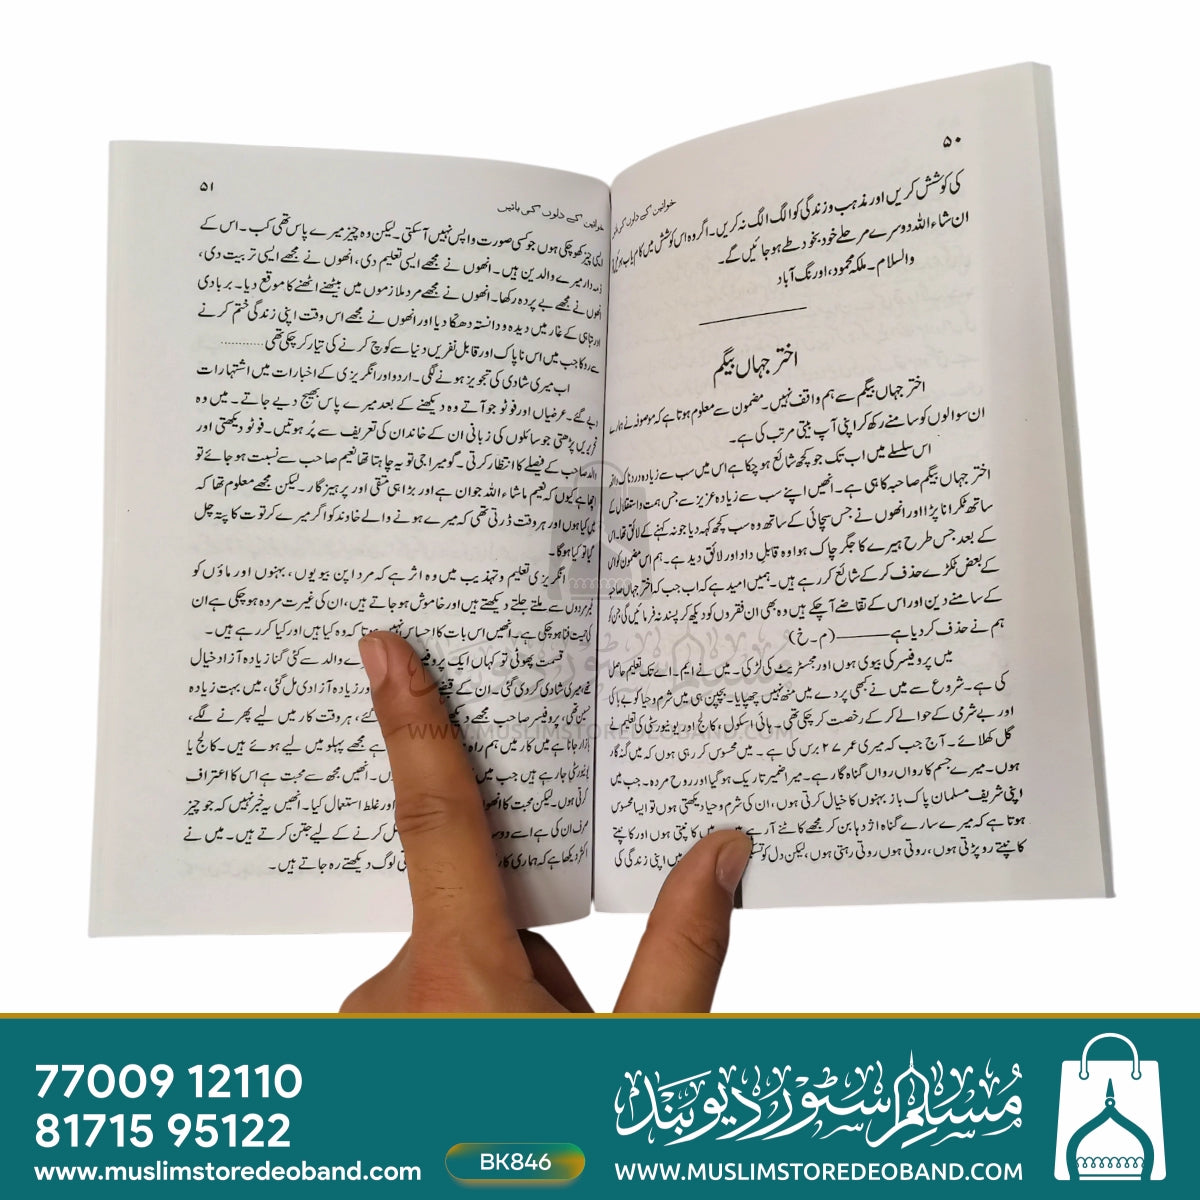 ۵۰
خواتین کے دلوں کی
کی کوشش کریں اور مذہب و زندگی کو الگ الگ نہ کریں۔ اگر وہ اس کوشش میں کامیاب
ان شاء اللہ دوسرے مرحلے خود بخود طے ہو جائیں گے۔
والسلام۔ ملکہ محمود، اورنگ آباد
اختر جہاں بیگم
اختر جہاں بیگم سے ہم واقف نہیں۔ مضمون سے معلوم ہوتا ہے کہ موصوفہ نے ہمارے
ان سوالوں کو سامنے رکھ کر اپنی آپ بیتی مرتب کی ہے۔
اس سلسلے میں اب تک جو کچھ شائع ہو چکا ہے اس میں سب سے زیادہ دردناک واقعہ
اختر جہاں بیگم صاحبہ کا ہی ہے۔ انھیں اپنے سب سے زیادہ عزیز سے جس ہمت و استقلال کے
ساتھ ٹکرانا پڑا اور انھوں نے جس سچائی کے ساتھ وہ سب کچھ کہہ دیا جو نہ کہنے کے لائق تھا۔ اس
کے بعد جس طرح ہیرے کا جگر چاک ہوا وہ قابلِ داد اور لائق دید ہے۔ ہم اس مضمون کو اس
کے بعض ٹکڑے حذف کر کے شائع کر رہے ہیں۔ ہمیں امید ہے کہ اب جب کہ اختر جہاں صاحبہ
کے سامنے دین اور اس کے تقاضے آ چکے ہیں وہ بھی ان فقروں کو دیکھ کر پسند نہ فرمائیں گی جن کو
ہم نے حذف کر دیا ہے ——— (م۔خ)
میں پروفیسر کی بیوی ہوں اور مجسٹریٹ کی لڑکی۔ میں نے ایم۔ اے تک تعلیم حاصل
کی ہے۔ شروع سے میں نے کبھی پردے میں منھ نہیں چھپایا۔ بچپن ہی میں شرم و حیا کو بے باکی
اور بے شرمی کے حوالے کر کے رخصت کر چکی تھی۔ ہائی اسکول، کالج اور یونیورسٹی کی تعلیم نے
گل کھلائے۔ آج جب کہ میری عمر ۲۷ برس کی ہے۔ میں محسوس کر رہی ہوں کہ میں گنہگار
ہوں۔ میرے جسم کا رواں رواں گناہ گار ہے۔ میرا ضمیر تاریک ہو گیا اور روح مردہ۔ جب میں
اپنی شریف مسلمان پاک باز بہنوں کا خیال کرتی ہوں، ان کی شرم و حیا دیکھتی ہوں تو ایسا محسوس
ہوتا ہے کہ میرے سارے گناہ اژدہا بن کر مجھے کاٹنے آ رہے میں کانپتی ہوں اور کانپتے
کانپتے رو پڑتی ہوں، روتی ہوں روتی رہتی ہوں، لیکن دل کو میں اپنی زندگی کی
۵۱
خواتین کے دلوں کی باتیں
ایسی چیز کھو چکی ہوں جو کسی صورت واپس نہیں آ سکتی۔ لیکن وہ چیز میرے پاس تھی کب۔ اس کے
ذمہ دار میرے والدین ہیں۔ انھوں نے مجھے ایسی تعلیم دی، انھوں نے مجھے ایسی تربیت دی،
انھوں نے مجھے بے پردہ رکھا۔ انھوں نے مجھے مرد ملازموں میں بیٹھنے اٹھنے کا موقع دیا۔ بربادی
اور تباہی کے غار میں دیدہ و دانستہ دھکا دیا اور انھوں نے مجھے اس وقت اپنی زندگی ختم کرنے
سے روکا جب میں اس ناپاک اور قابل نفریں دنیا سے کوچ کرنے کی تیار کر چکی تھی............
اب میری شادی کی تجویز ہونے لگی۔ اردو اور انگریزی کے اخبارات میں اشتہارات
دیے گئے۔ عرضیاں اور فوٹو جو آتے وہ دیکھنے کے بعد میرے پاس بھیج دیے جاتے۔ میں وہ
تحریریں پڑھتی جو سائلوں کی زبانی ان کے خاندان کی تعریف سے پُر ہوتیں۔ فوٹو دیکھتی اور
والد صاحب کے فیصلے کا انتظار کرتی۔ گو میرا جی تو یہ چاہتا تھا نعیم صاحب سے نسبت ہو جائے تو
اچھا ہے کیوں کہ نعیم ماشاء اللہ جوان ہے اور بڑا ہی متقی اور پرہیزگار۔ لیکن مجھے معلوم تھا کہ
میں کیا ہوں اور ہر وقت ڈرتی تھی کہ میرے ہونے والے خاوند کو اگر میرے کرتوت کا پتہ چل
گیا تو کیا ہوگا۔
انگریزی تعلیم و تہذیب میں وہ اثر ہے کہ مرد اپن بیویوں، بہنوں اور ماؤں کو
غیر مردوں سے ملتے جلتے دیکھتے ہیں اور خاموش ہو جاتے ہیں، ان کی غیرت مردہ ہو چکی ہے ان
کی حمیت فنا ہو چکی ہے۔ انھیں اس بات کا احساس نہیں ہوتا کہ وہ کیا ہیں اور کیا کر رہے ہیں۔
قسمت پھوٹی تو کہاں ایک والد سے کئی گنا زیادہ آزاد خیال
تھے، میری شادی کر دی گئی۔ ان کے اور زیادہ آزادی مل گئی، میں بہت زیادہ
حسین تھی، پروفیسر صاحب مجھے ہر وقت کار میں لیے پھرنے لگے،
بازار جانا ہے میں کار میں ہم ہے مجھے پہلو میں لیے ہوئے ہیں۔ کالج یا
یونیورسٹی جا رہے ہیں جب میں انھیں مجھ سے محبت ہے اس کا اعتراف
کرتی ہوں۔ لیکن محبت کا انھوں اور غلط استعمال کیا۔ انھیں یہ خبر نہیں کہ جو چیز
صرف ان کی ہے اسے کرنے کے لیے جتن کرتے ہیں۔ میں نے
اکثر دیکھا ہے کہ ہماری لوگ دیکھتے رہ جاتے ہیں۔
مسلم سٹور دیوبند
WWW.MUSLIMSTOREDEOBAND.COM
77009 12110
81715 95122
www.muslimstoredeoband.com
BK846
مسلم سٹور دیوبند
WWW.MUSLIMSTOREDEOBAND.COM